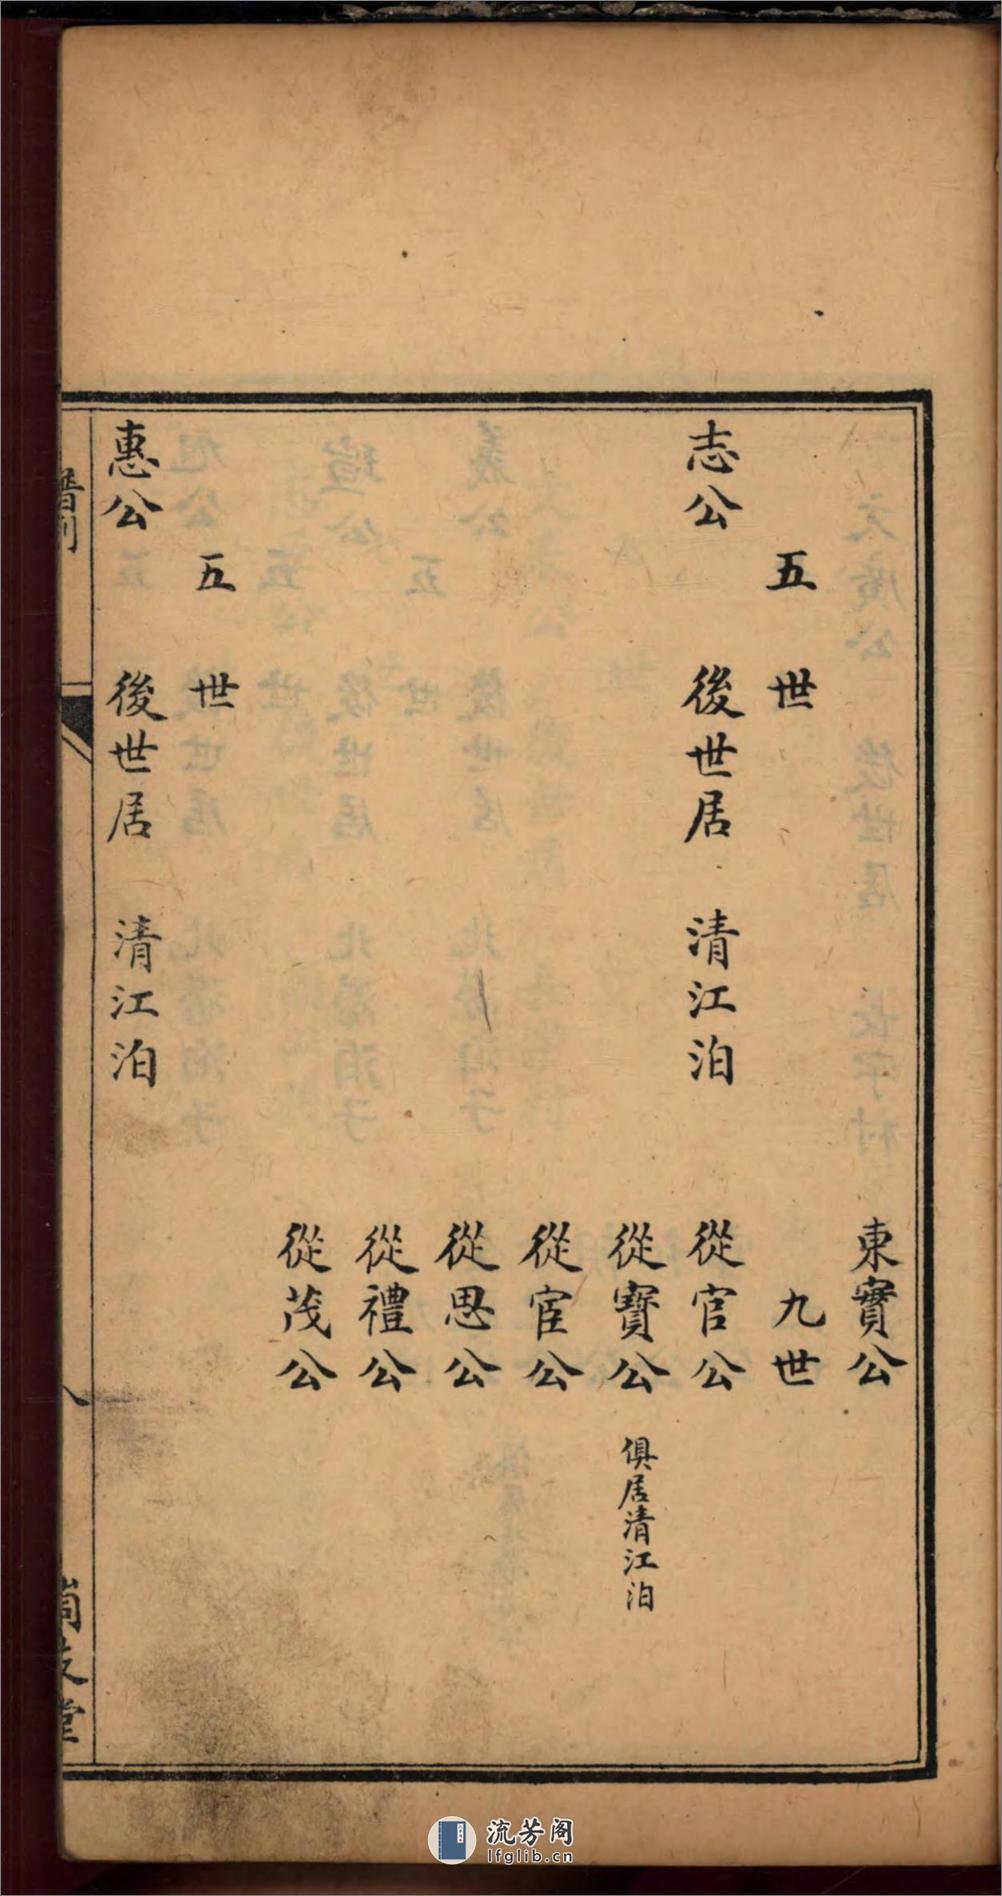 東實公
五世 九世
志公 後世居 清江泊 從官公
從寶公 俱居清江泊
從宦公
從思公
從禮公
從茂公
五世
惠公 後世居 清江泊
譜例
八
堂
流芳阁
lfglib.cn